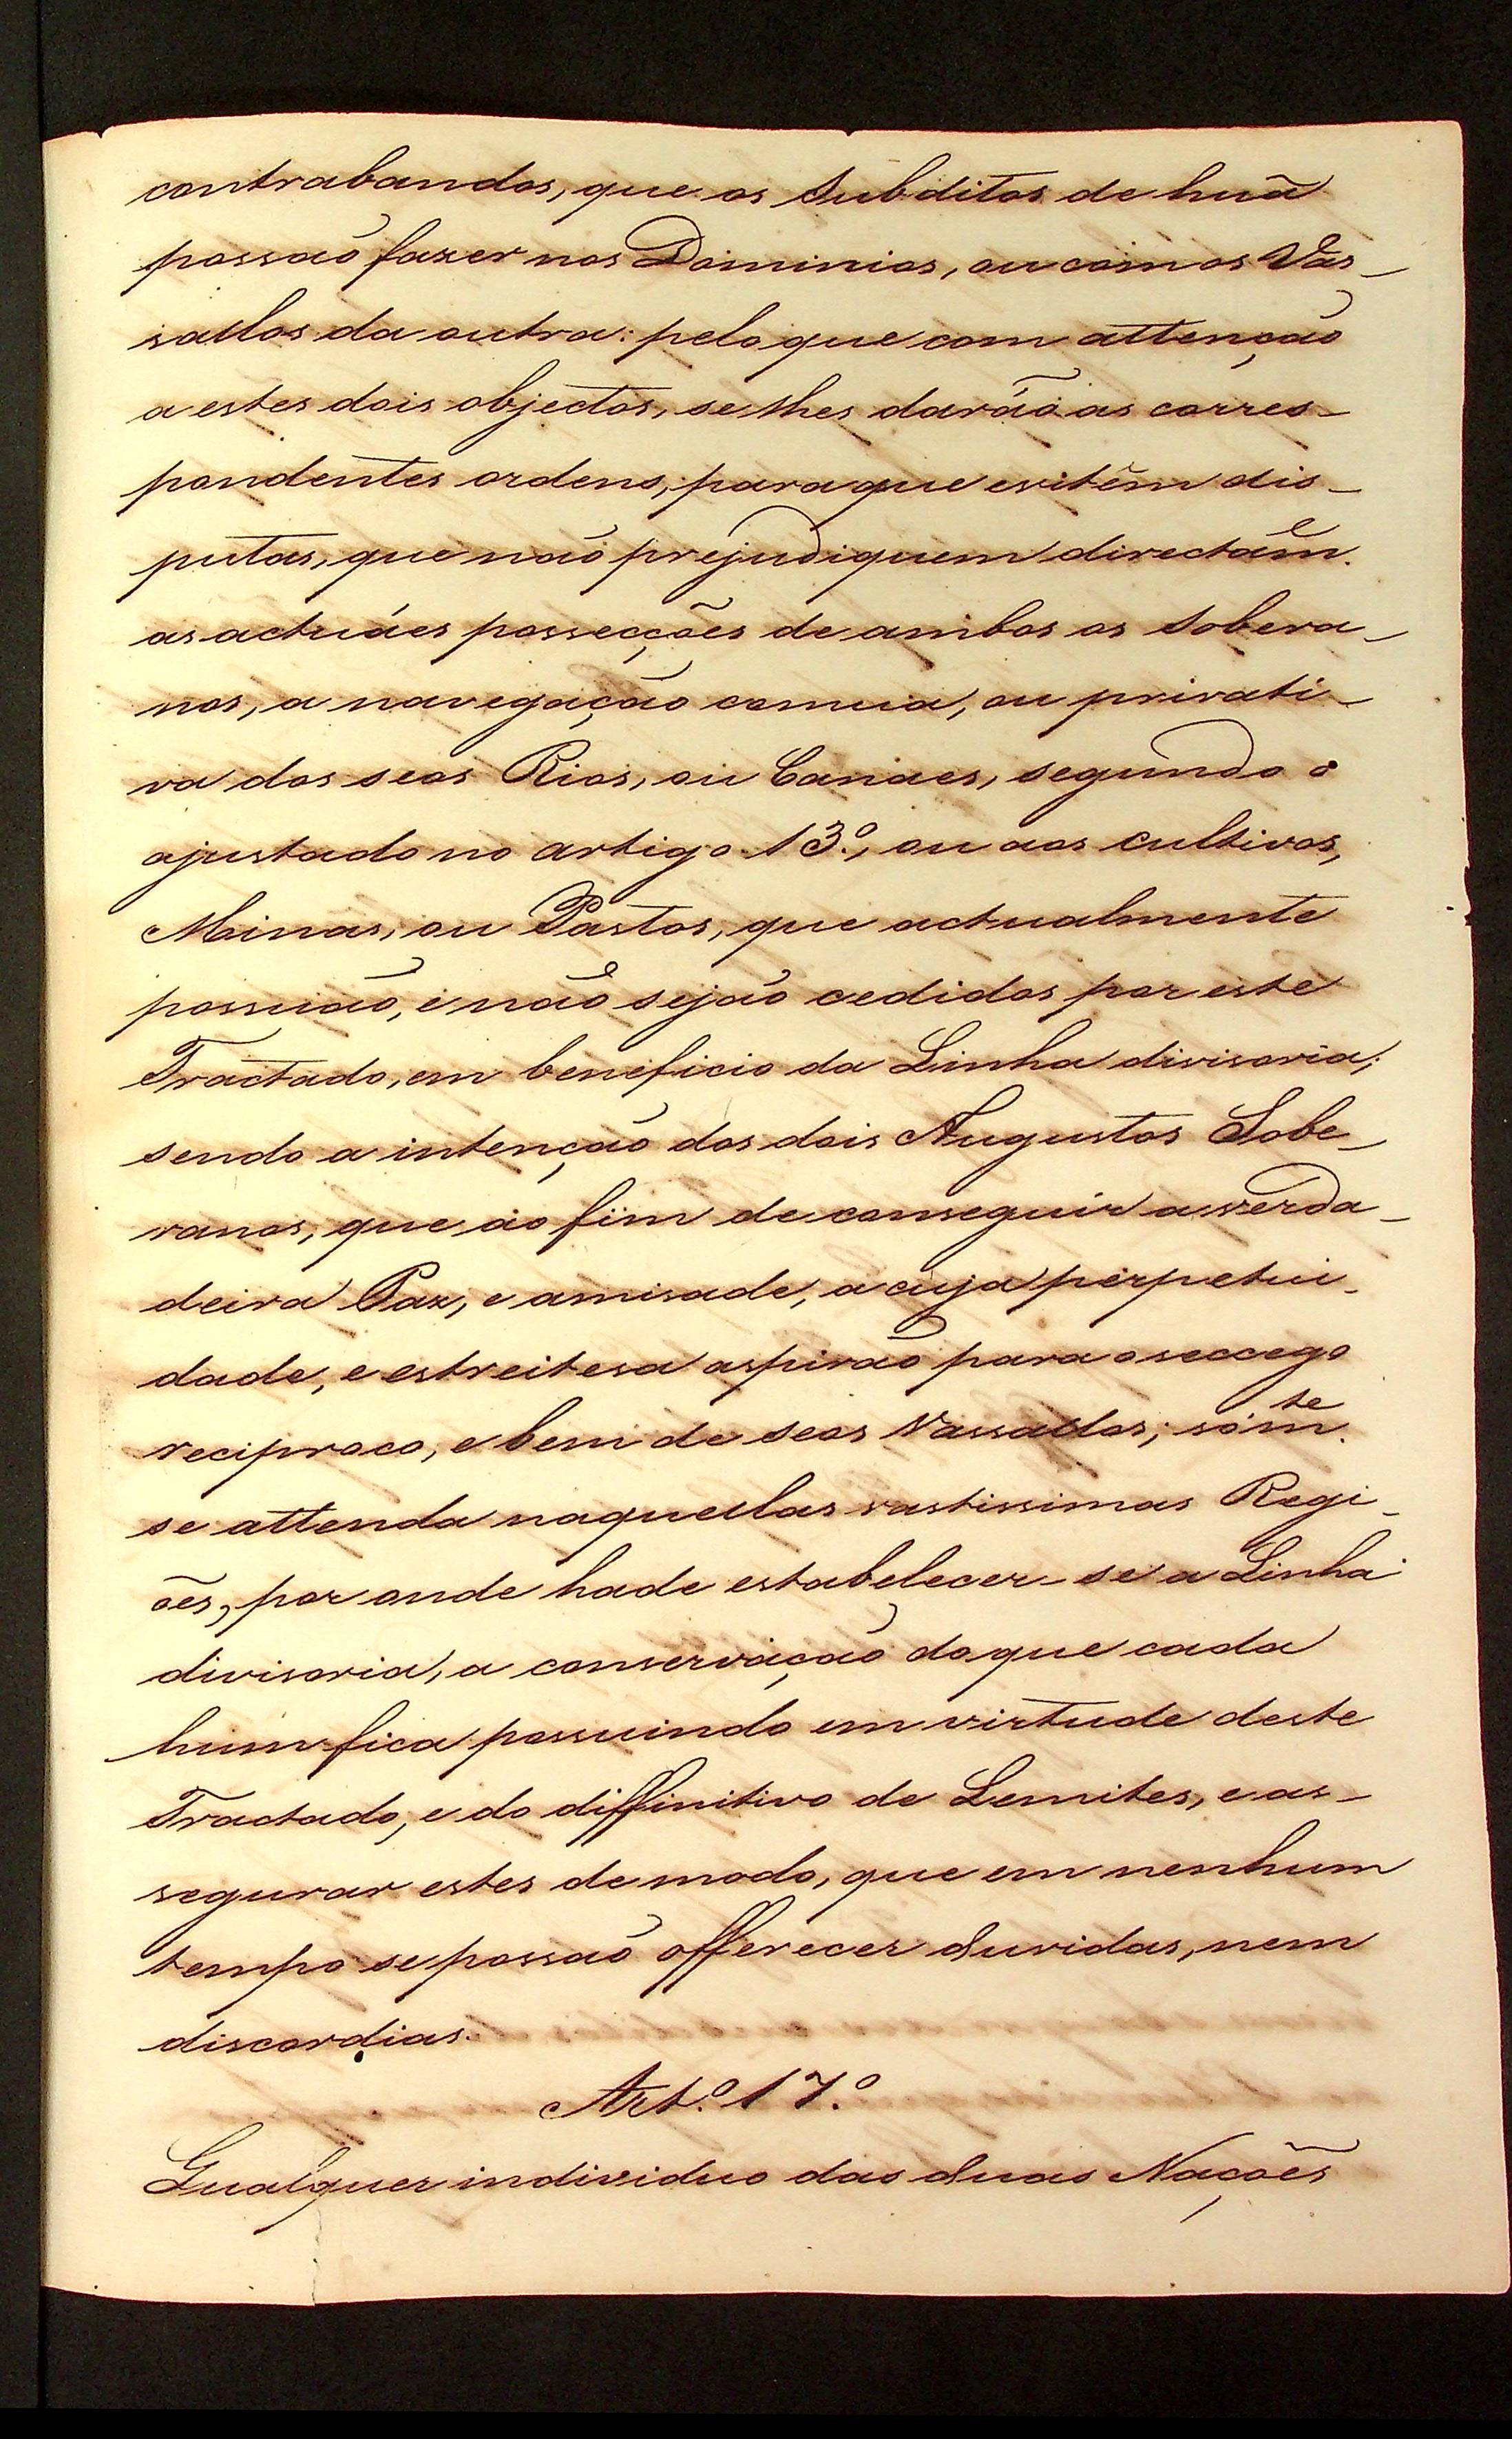 contrabandos, que os subditos de huã
possaõ fazer nos Dominios, ou com os Vas-
sallos da outra: pelo que com attenção
a estes dois objectos, se lhes darão as corres-
pondentes ordens, para que evitêm dis-
putas, que naõ prejudiquem directam.e
as actuáes possecções de ambos os Sobera-
nos, a navegação comua, ou privati-
va dos seos Rios, ou Canaes, segundo o
ajustado no artigo 13.º, ou aos cultivos,
Minas, ou Pastos, que actualmente
possuaõ, e não sejaõ cedidos por este
Tractado, em beneficio da Linha divisoria;
sendo a intenção dos dois Augustos Sobe-
ranos, que ao fim de conseguir a verda-
deira Paz, e amisade, a cuja perpetui-
dade, e estreitesa aspiraõ para o seccego
reciproco, e bem de seos Vassallos; sóm.te
se attenda naquellas vastissimas Regi-
ões, por onde hade estabelecer-se a Linha
divisoria, a conservação do que cada
hum fica possuindo em virtude deste
Tractado, e do diffinitivo de Lemites, e as-
segurar estes de modo, que em nenhum
tempo se possaõ offerecer duvidas, nem
discordias.
Art.º 17.º
Qualquer individuo das duas Nações